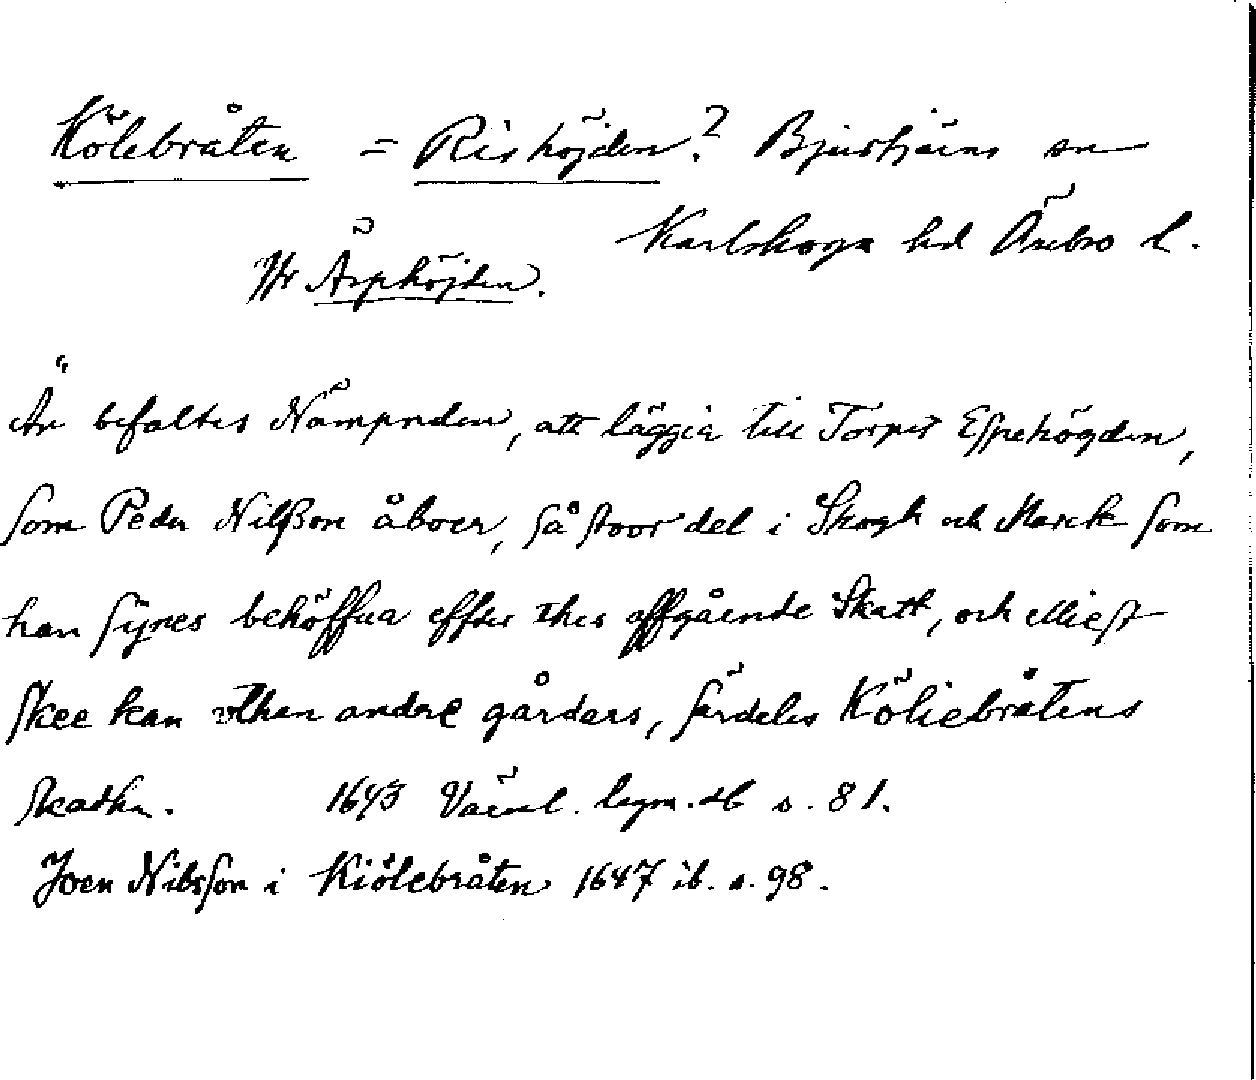 Kölebråten = Rishöjden? Bjurtjärns sn
Karlskoga hd Örebro l.
Hr Äsphöjden.
Är befaltes Nämpnden, att läggia till Torpet Espehögden,
som Peder Nilßon åboer, så stoor del i Skogh och Marck som
han synes behöffua effter thes affgående Skatt, och Miest
skee kan vthan andre gårdars, särdeles Köliebråtens
skadha. 1643 Värml. lagm. db s. 81.
Joen Nilsson i Kiölebråten 1647 ib. s. 98.